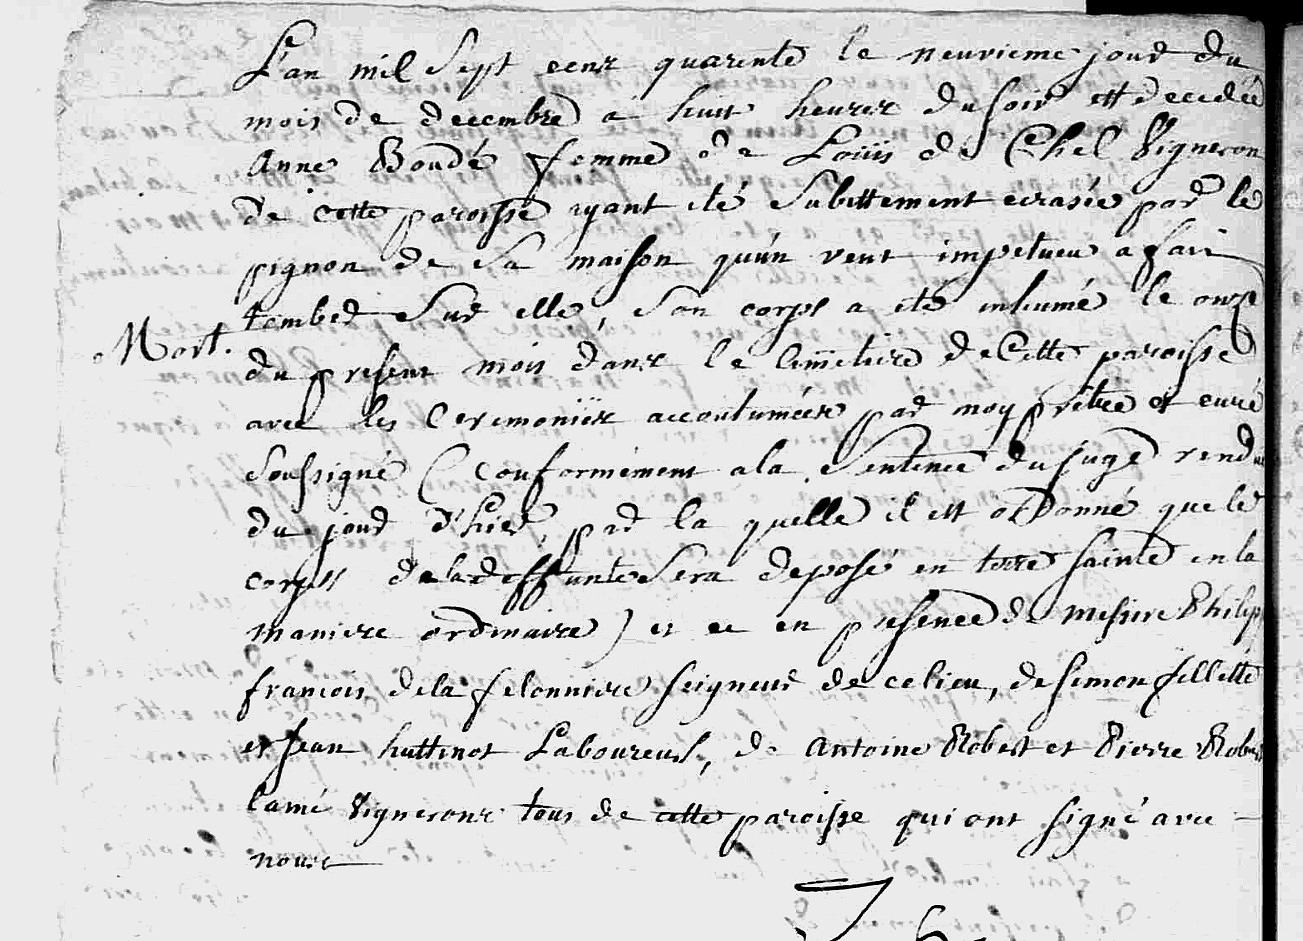 L'an mil Sept cens quarente le neuvieme jour du
mois de decembre a huit heures du soir est decedée
Anne Boudé femme de Louis de Chel Vigneron
de cette paroisse ayant eté Subittement ecrasée par le
pignon de Sa maison qu'un vent impetueu a fait
tomber Sur elle, Son corps a eté inhumé le onze
Mort.
du present mois dans le Cimetiere de Cette paroisse
avec les Ceremonies accoutumées par moy prêtre et curé
Soussigné ( conformement a la Sentence du juge rendue
du jour d'hier, par la quelle il est ordonné que le
corps de la deffunte Sera deposé en terre Sainte en la
maniere ordinaire ) et ce en presence de messire Philipp
francois de la felonniere seigneur de ce lieu, de Simon fillette
et Jean huttinot Laboureurs, de Antoine Robert et Pierre Robert
l'ainé Vignerons tous de cette paroisse qui ont signé avec
nous